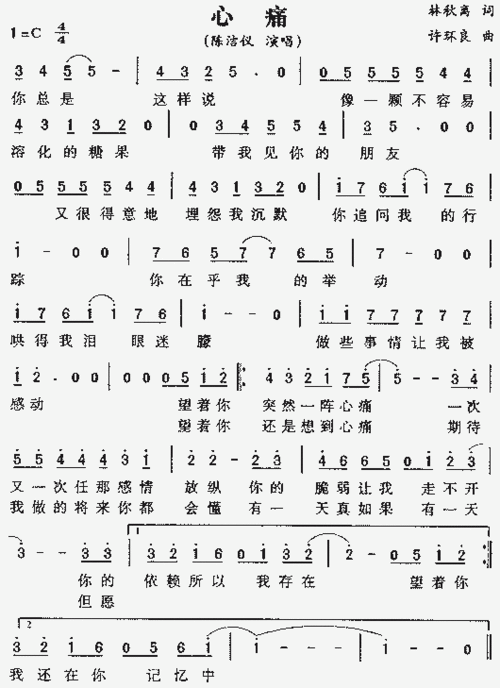 心 痛
1=C 4/4
(陈洁仪 演唱)
林秋离 词
许环良 曲
3 4 5 5 - | 4 3 2 5 . 0 | 0 5 5 5 5 5 4 4 |
你总是 这样说 像一颗不容易
4 3 1 3 2 0 | 0 3 4 5 5 4 | 3 5 . 0 0 |
溶化的糖果 带我见你的 朋友
0 5 5 5 5 5 4 4 | 4 3 1 3 2 0 | 1 7 6 1 1 7 6 |
又很得意地 埋怨我沉默 你追问我 的行
1 - 0 0 | 7 6 5 7 7 6 5 | 7 - 0 0 |
踪 你在乎我 的举 动
1 7 6 1 1 7 6 | 1 - - 0 | 1 1 7 7 7 7 7 |
哄得我泪 眼迷 朦 做些事情让我被
1 2 . 0 0 | 0 0 0 5 1 2 :| 4 3 2 1 7 5 | 5 - - 3 4 |
感动 望着你 突然一阵心痛 一次
望着你 还是想到心痛 期待
5 5 4 4 4 3 1 | 2 2 - 2 3 | 4 6 6 5 0 1 2 3 |
又一次任那感情 放纵 你的 脆弱让我 走不开
我做的将来你都 会懂 有一 天真如果 有一天
3 - - 3 3 | 3 2 1 6 0 1 3 2 | 2 - 0 5 1 2 :|
1
你的 依赖所以 我存在 望着你
但愿
2
3 2 1 6 0 5 6 1 | 1 - - - | 1 - - 0 ||
我还在你 记忆中